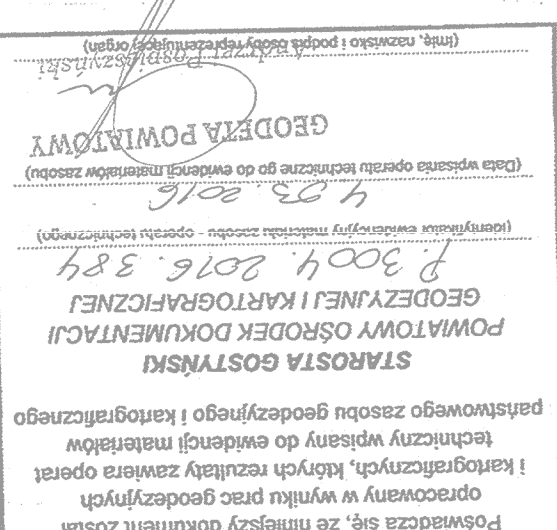 Poświadcza się, że niniejszy dokument został
opracowany w wyniku prac geodezyjnych
i kartograficznych, których rezultaty zawiera operat
techniczny wpisany do ewidencji materiałów
państwowego zasobu geodezyjnego i kartograficznego
STAROSTA GOSTYŃSKI
POWIATOWY OŚRODEK DOKUMENTACJI
GEODEZYJNEJ I KARTOGRAFICZNEJ
P.3004.2016.384
(identyfikator ewidencyjny materiału zasobu - operatu technicznego)
4.03.2016
(Data wpisania operatu techniczne go do ewidencji materiałów zasobu)
GEODETA POWIATOWY
Andrzej Pospieszyński
(Imię, nazwisko i podpis osoby reprezentującej organ)